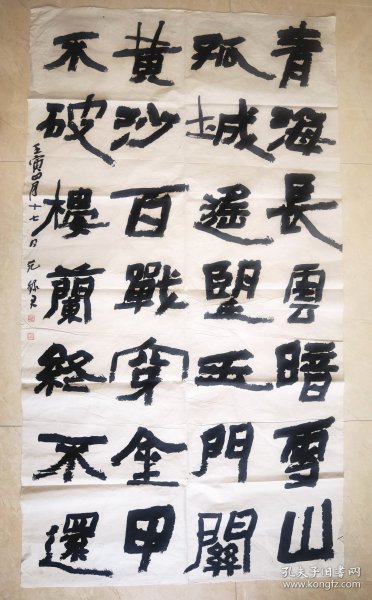 青海長雲暗雪山
孤城遥望玉門關
黄沙百戰穿金甲
不破樓蘭終不還
壬寅四月十七日
孔夫子旧书网
www.kongfz.com